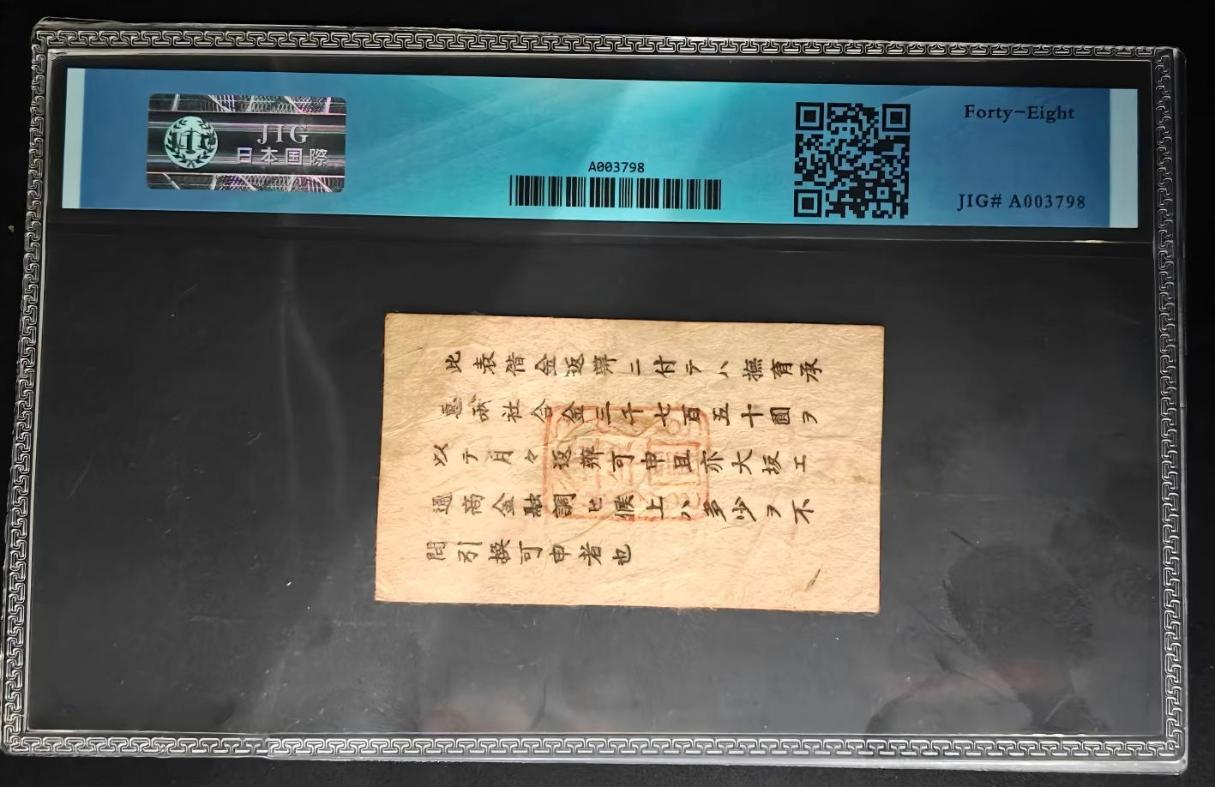 JIG
日本国際
A003798
Forty-Eight
JIG# A003798
此表借金返辨ニ付テハ撫育承
惠社合金三千七百五十圓ヲ
以テ月々返辨可申且亦大坂エ
通商金融調ヒ候上ハ多少ヲ不
問引換可申者也